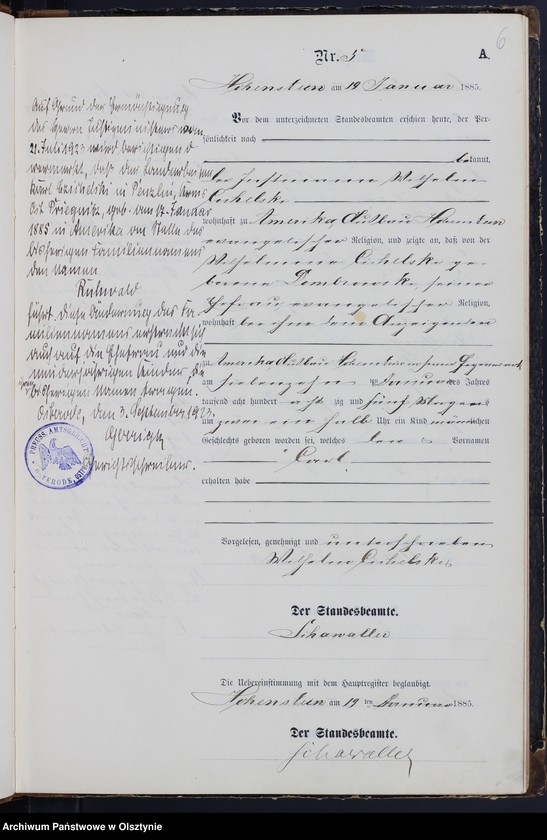 6
Nr. 5
A.
Hohenstein am 19 Januar 1885.
Vor dem unterzeichneten Standesbeamten erschien heute, der Per-
sönlichkeit nach
bekannt,
der Instmann Wilhelm
Cichelski
wohnhaft zu Amerika, Ausbau Hohenstein
evangelischer Religion, und zeigte an, daß von der
Wilhelmine Cichelski ge-
borene Dombrowski, seiner
Ehefrau, evangelischer Religion,
wohnhaft bei ihm dem Anzeigenden
zu Amerika, Ausbau Hohenstein in seiner Gegenwart,
am siebenzehn ten Januar des Jahres
tausend acht hundert acht zig und fünf Morgens
um zwei ein halb Uhr ein Kind männlichen
Geschlechts geboren worden sei, welches den Vornamen
Carl
erhalten habe
Vorgelesen, genehmigt und unterschrieben
Wilhelm Cichelski
Der Standesbeamte.
Schawaller
Die Uebereinstimmung mit dem Hauptregister beglaubigt.
Hohenstein am 19 ten Januar 1885.
Der Standesbeamte.
Schawaller
Auf Grund der Ermächtigung
des Herrn Justizministers vom
21. Juli 1923 wird berichtigend
vermerkt, daß der Landarbeiter
Karl Czichelski in Penzlin, Kreis
Ost Priegnitz, geb. am 17. Januar
1885 in Amerika an Stelle des
bisherigen Familiennamens
den Namen
Ruhwald
führt. Diese Änderung des Fa-
miliennamens erstreckt sich
auch auf die Ehefrau und die
minderjährigen Kinder, die
bisherigen Namen tragen.
Osterode, den 3. September 1923.
Gerichtsschreiber.
PREUSS. AMTSGERICHT
OSTERODE, OSTPR.
Archiwum Państwowe w Olsztynie